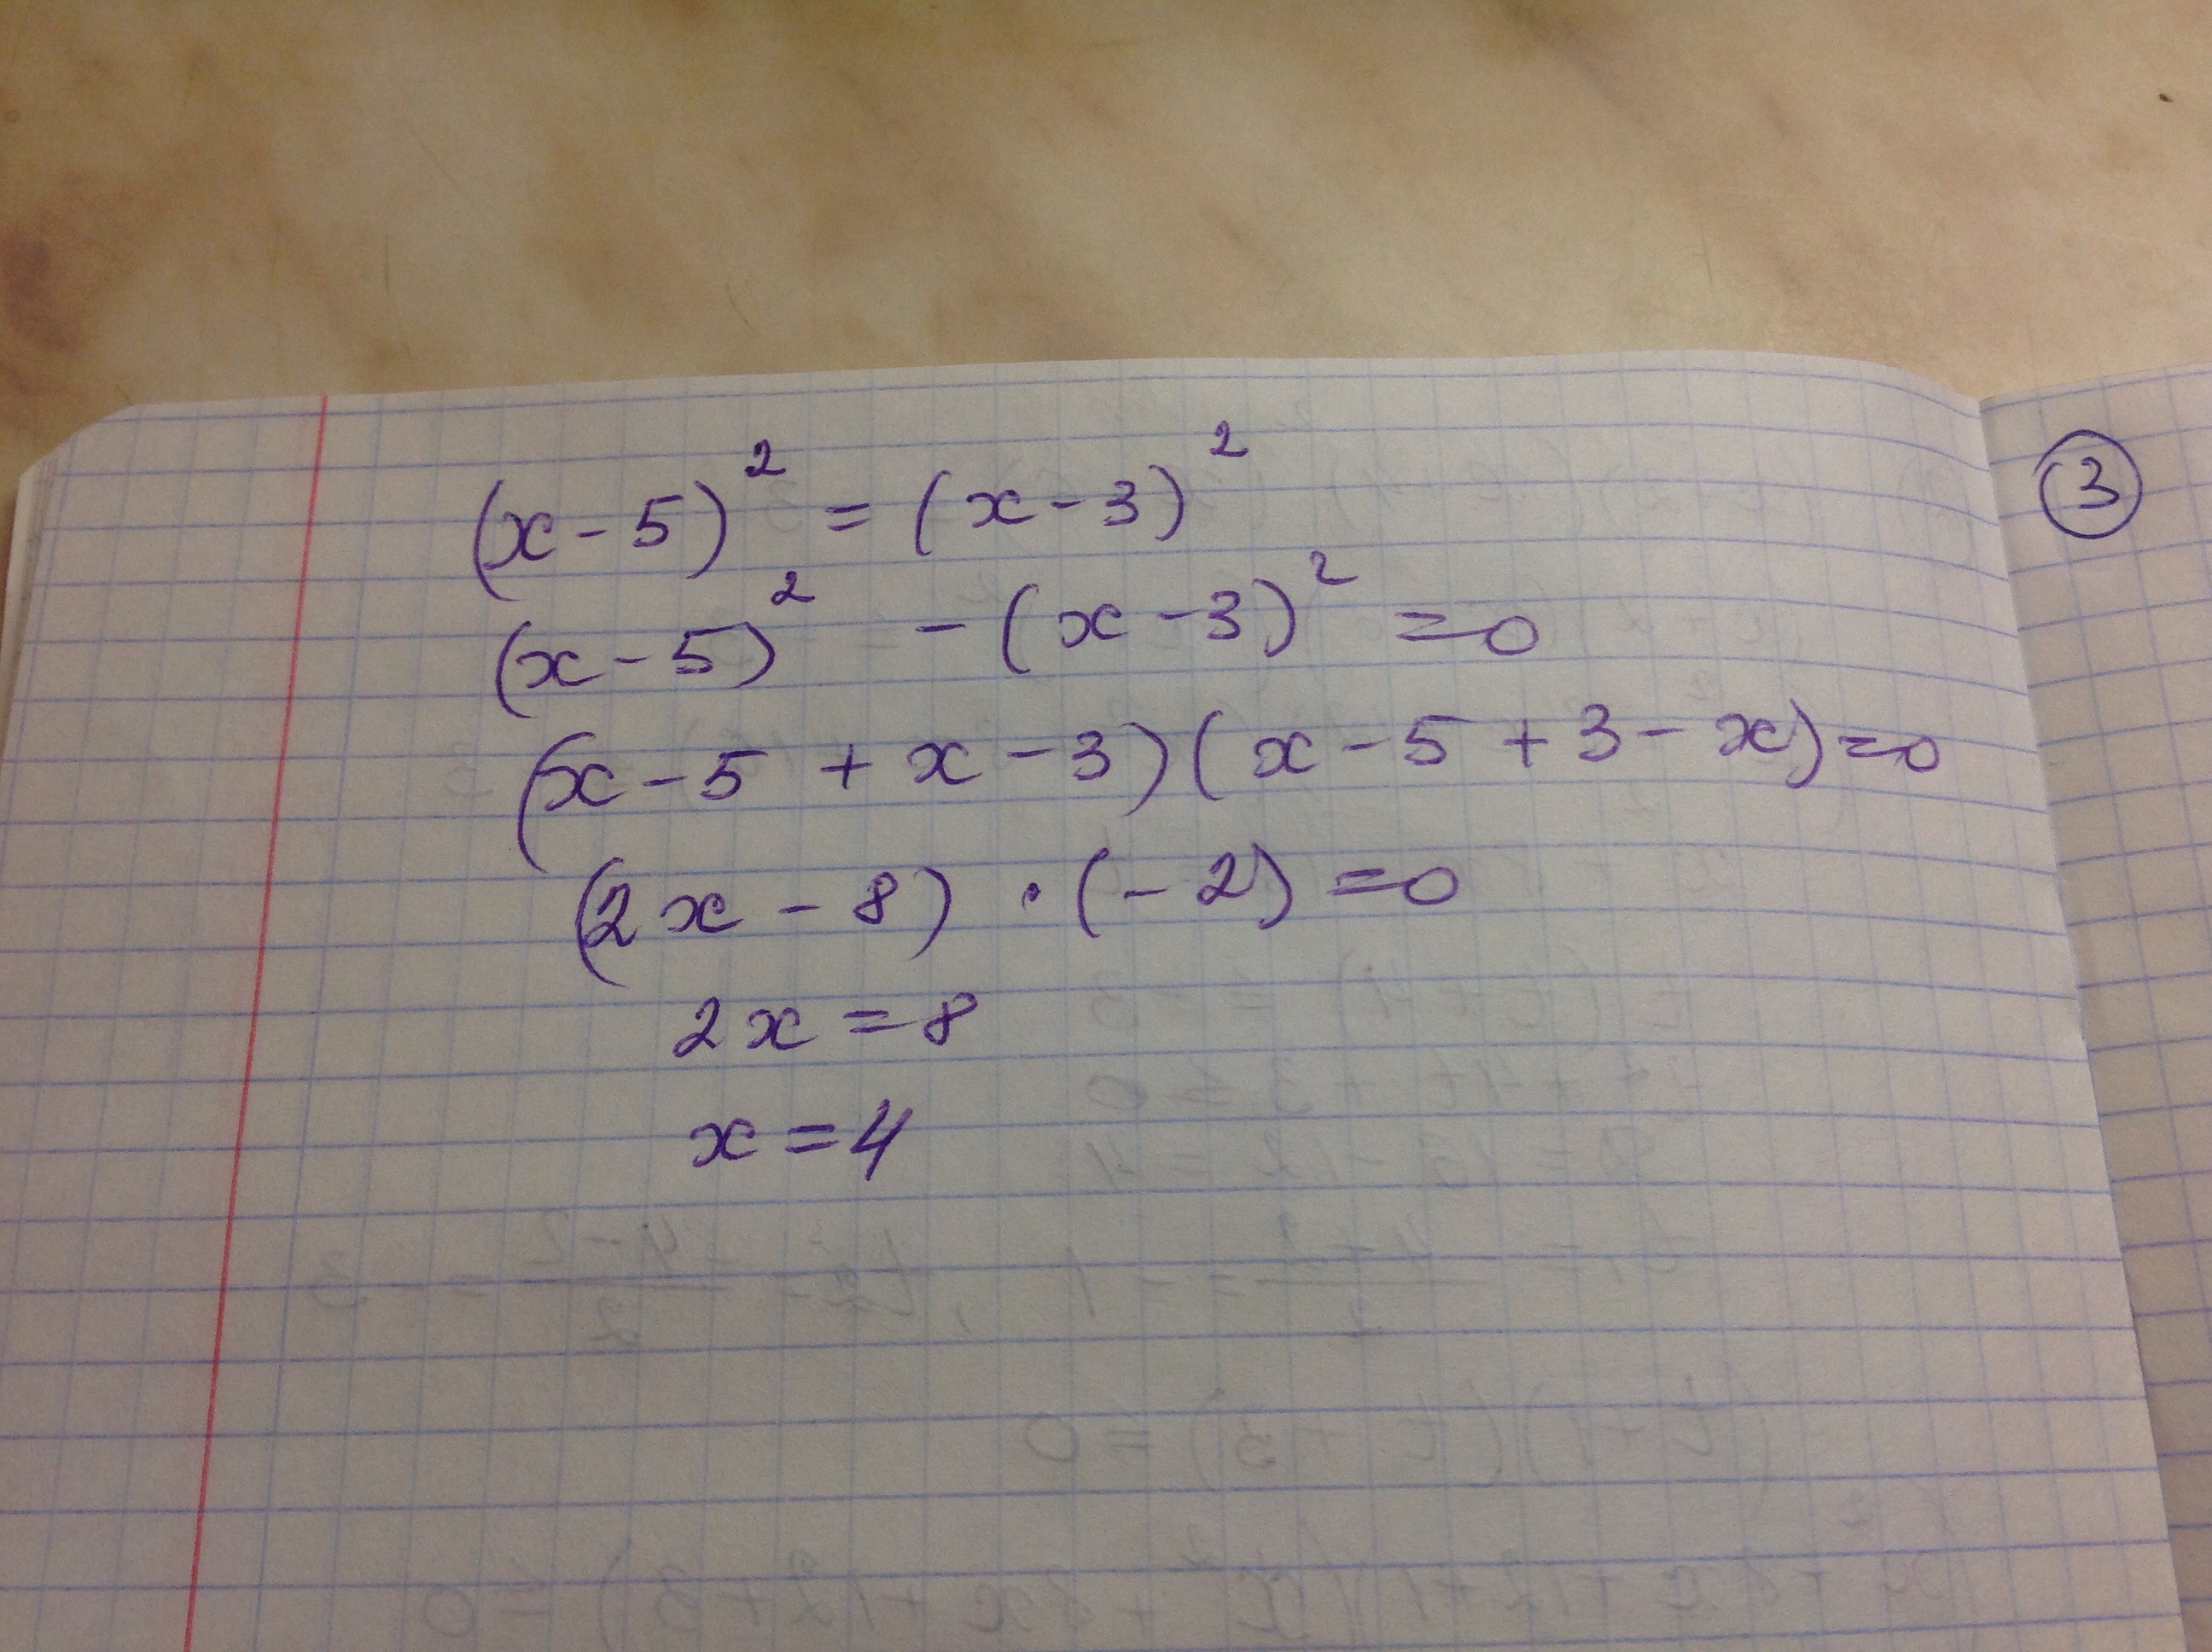 (x-5)² = (x-3)²
(x-5)² - (x-3)² = 0
(x-5+x-3)(x-5+3-x)=0
(2x-8)·(-2)=0
2x=8
x=4
3